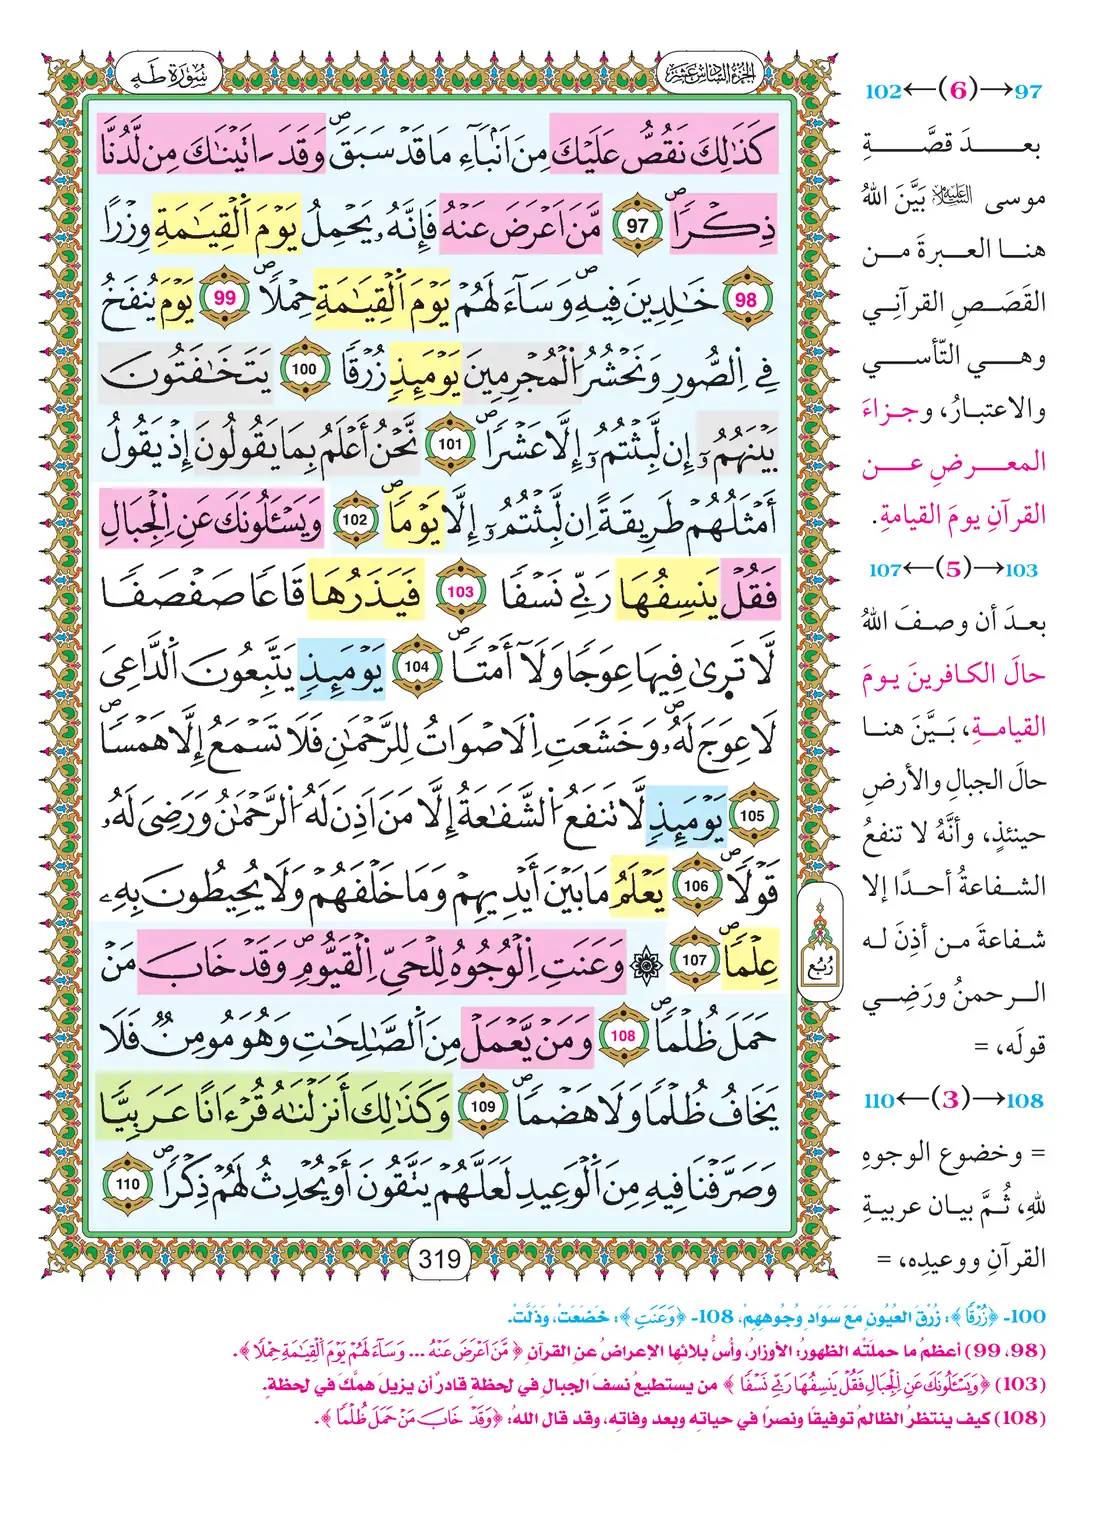 سُورَةُ طَهَ
الجُزْءُ السَّادِسَ عَشَرَ
كَذَٰلِكَ نَقُصُّ عَلَيْكَ مِنَ اَنۢبَآءِ مَا قَدْ سَبَقَۖ وَقَدَ اٰتَيْنَٰكَ مِن لَّدُنَّا
ذِكْراٗۖ 97 مَّنَ اَعْرَضَ عَنْهُ فَإِنَّهُۥ يَحْمِلُ يَوْمَ اَلْقِيَٰمَةِ وِزْراٗ
98 خَٰلِدِينَ فِيهِۖ وَسَآءَ لَهُمْ يَوْمَ اَلْقِيَٰمَةِ حِمْلاٗۖ 99 يَوْمَ يُنفَخُ
فِے اِلصُّورِ وَنَحْشُرُ اُلْمُجْرِمِينَ يَوْمَئِذٖ زُرْقاٗ 100 يَتَخَٰفَتُونَ
بَيْنَهُمُۥٓ إِن لَّبِثْتُمُۥٓ إِلَّا عَشْراٗۖ 101 نَّحْنُ أَعْلَمُ بِمَا يَقُولُونَ إِذْ يَقُولُ
أَمْثَلُهُمْ طَرِيقَةً اِن لَّبِثْتُمُۥٓ إِلَّا يَوْماٗۖ 102 وَيَسْـَٔلُونَكَ عَنِ اِلْجِبَالِ
فَقُلْ يَنسِفُهَا رَبِّے نَسْفاٗ 103 فَيَذَرُهَا قَاعاٗ صَفْصَفاٗ
لَّا تَرٜىٰ فِيهَا عِوَجاٗ وَلَآ أَمْتاٗۖ 104 يَوْمَئِذٖ يَتَّبِعُونَ اَلدَّاعِيَ
لَا عِوَجَ لَهُۥۖ وَخَشَعَتِ اِلَاصْوَاتُ لِلرَّحْمَٰنِ فَلَا تَسْمَعُ إِلَّا هَمْساٗۖ
105 يَوْمَئِذٖ لَّا تَنفَعُ اُلشَّفَٰعَةُ إِلَّا مَنَ اَذِنَ لَهُ اُلرَّحْمَٰنُ وَرَضِيَ لَهُۥ
قَوْلاٗۖ 106 يَعْلَمُ مَا بَيْنَ أَيْدِيهِمْ وَمَا خَلْفَهُمْ وَلَا يُحِيطُونَ بِهِۦ
عِلْماٗۖ 107 ۞ وَعَنَتِ اِلْوُجُوهُ لِلْحَيِّ اِلْقَيُّومِۖ وَقَدْ خَابَ مَنْ
رُبُع
حَمَلَ ظُلْماٗۖ 108 وَمَنْ يَّعْمَلْ مِنَ اَلصَّٰلِحَٰتِ وَهُوَ مُومِنٞ فَلَا
يَخَافُ ظُلْماٗ وَلَا هَضْماٗۖ 109 وَكَذَٰلِكَ أَنزَلْنَٰهُ قُرْءَاناً عَرَبِيّاٗ
وَصَرَّفْنَا فِيهِ مِنَ اَلْوَعِيدِ لَعَلَّهُمْ يَتَّقُونَ أَوْ يُحْدِثُ لَهُمْ ذِكْراٗۖ 110
319
97→(6)←102
بعـد قصَّـةِ
موسى عليه السلام بَيَّنَ اللهُ
هنـا العبـرةَ مـن
القَصَـصِ القرآنِـي
وهـي التّأسـي
والاعتبـارُ، وجـزاءَ
المعـرضِ عـن
القرآنِ يومَ القيامةِ.
103→(5)←107
بعدَ أن وصفَ اللهُ
حالَ الكافرينَ يـومَ
القيامـةِ، بَـيَّنَ هنـا
حالَ الجبالِ والأرضِ
حينئذٍ، وأنَّهُ لا تنفعُ
الشـفاعةُ أحـدًا إلا
شفاعةَ مـن أذِنَ لـه
الـرحمنُ ورَضِـي
قولَه، =
108→(3)←110
= وخضوع الوجوهِ
للهِ، ثُـمَّ بيـان عربيـةِ
القرآنِ ووعيدِه، =
100- ﴿زُرْقاٗ﴾: زُرْقَ العُيُونِ مَعَ سَوَادِ وُجُوهِهِمْ، 108- ﴿وَعَنَتِ﴾: خَضَعَتْ، وَذَلَّتْ.
(98، 99) أعظمُ ما حملَتْه الظهورُ: الأوزارُ، وأسُّ بلائها الإعراضُ عنِ القرآنِ ﴿مَّنَ اَعْرَضَ عَنْهُ ... وَسَآءَ لَهُمْ يَوْمَ اَلْقِيَٰمَةِ حِمْلاٗ﴾.
(103) ﴿وَيَسْـَٔلُونَكَ عَنِ اِلْجِبَالِ فَقُلْ يَنسِفُهَا رَبِّے نَسْفاٗ﴾ من يستطيعُ نسفَ الجبالِ في لحظةٍ قادرٌ أن يزيلَ همَّكَ في لحظةٍ.
(108) كيف ينتظرُ الظالمُ توفيقًا ونصرًا في حياتِه وبعد وفاتِه، وقد قال اللهُ: ﴿وَقَدْ خَابَ مَنْ حَمَلَ ظُلْماٗ﴾.